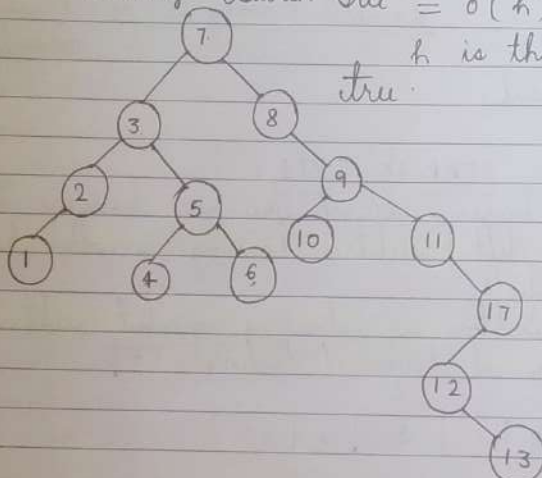 = O(h)
h is th
tree.
7
3 8
2 5 9
1 4 6 10 11
17
12
13